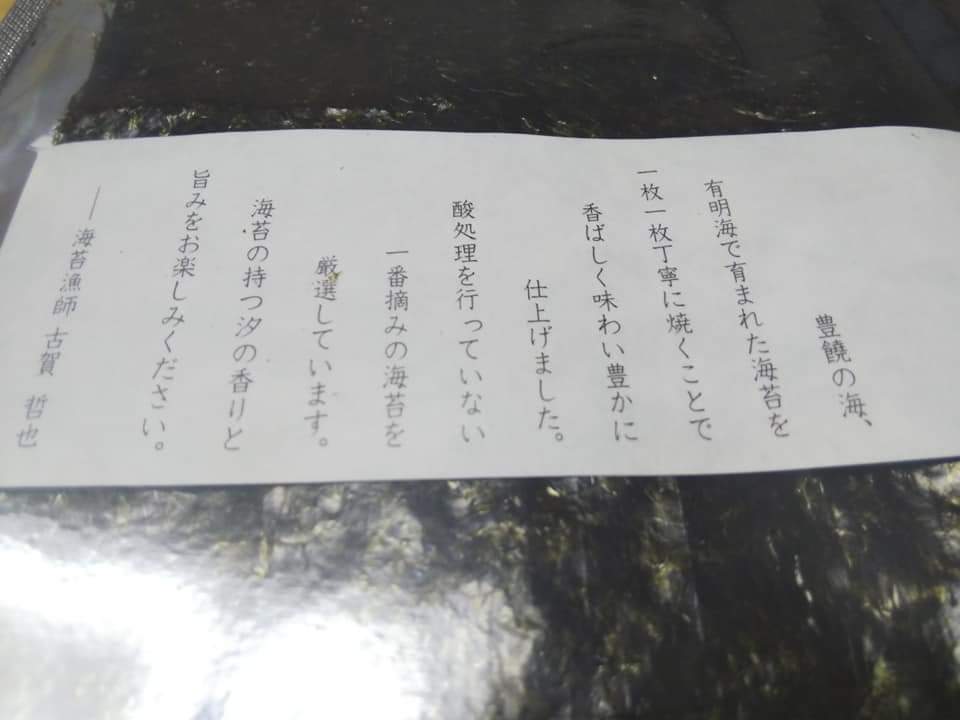 豊饒の海、
有明海で育まれた海苔を
一枚一枚丁寧に焼くことで
香ばしく味わい豊かに
仕上げました。
酸処理を行っていない
一番摘みの海苔を
厳選しています。
海苔の持つ汐の香りと
旨みをお楽しみください。
── 海苔漁師 古賀 哲也